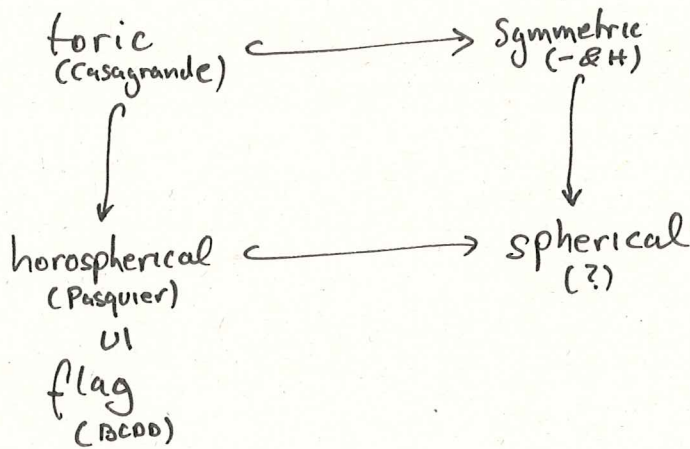 toric
(Casagrande)
symmetric
(- & H)
horospherical
(Pasquier)
spherical
(?)
UI
flag
(BCDD)